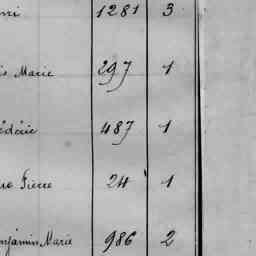 nri 1281 3
is Marie 297 1
édéric 487 1
re Pierre 24 1
enjamin Marie 986 2